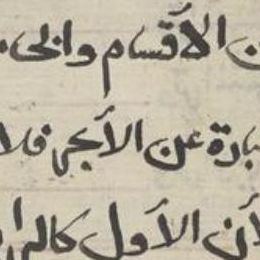 ن الأقسام والجـ
ـبارة عن الأبجر فلا
لأن الأول كالر